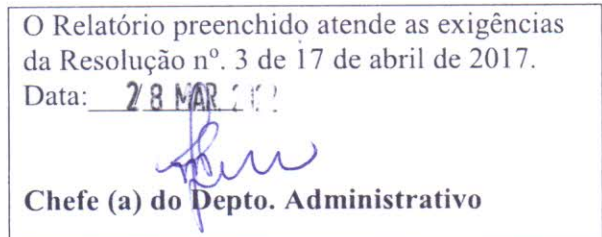 O Relatório preenchido atende as exigências
da Resolução nº. 3 de 17 de abril de 2017.
Data: 28 MAR
Chefe (a) do Depto. Administrativo